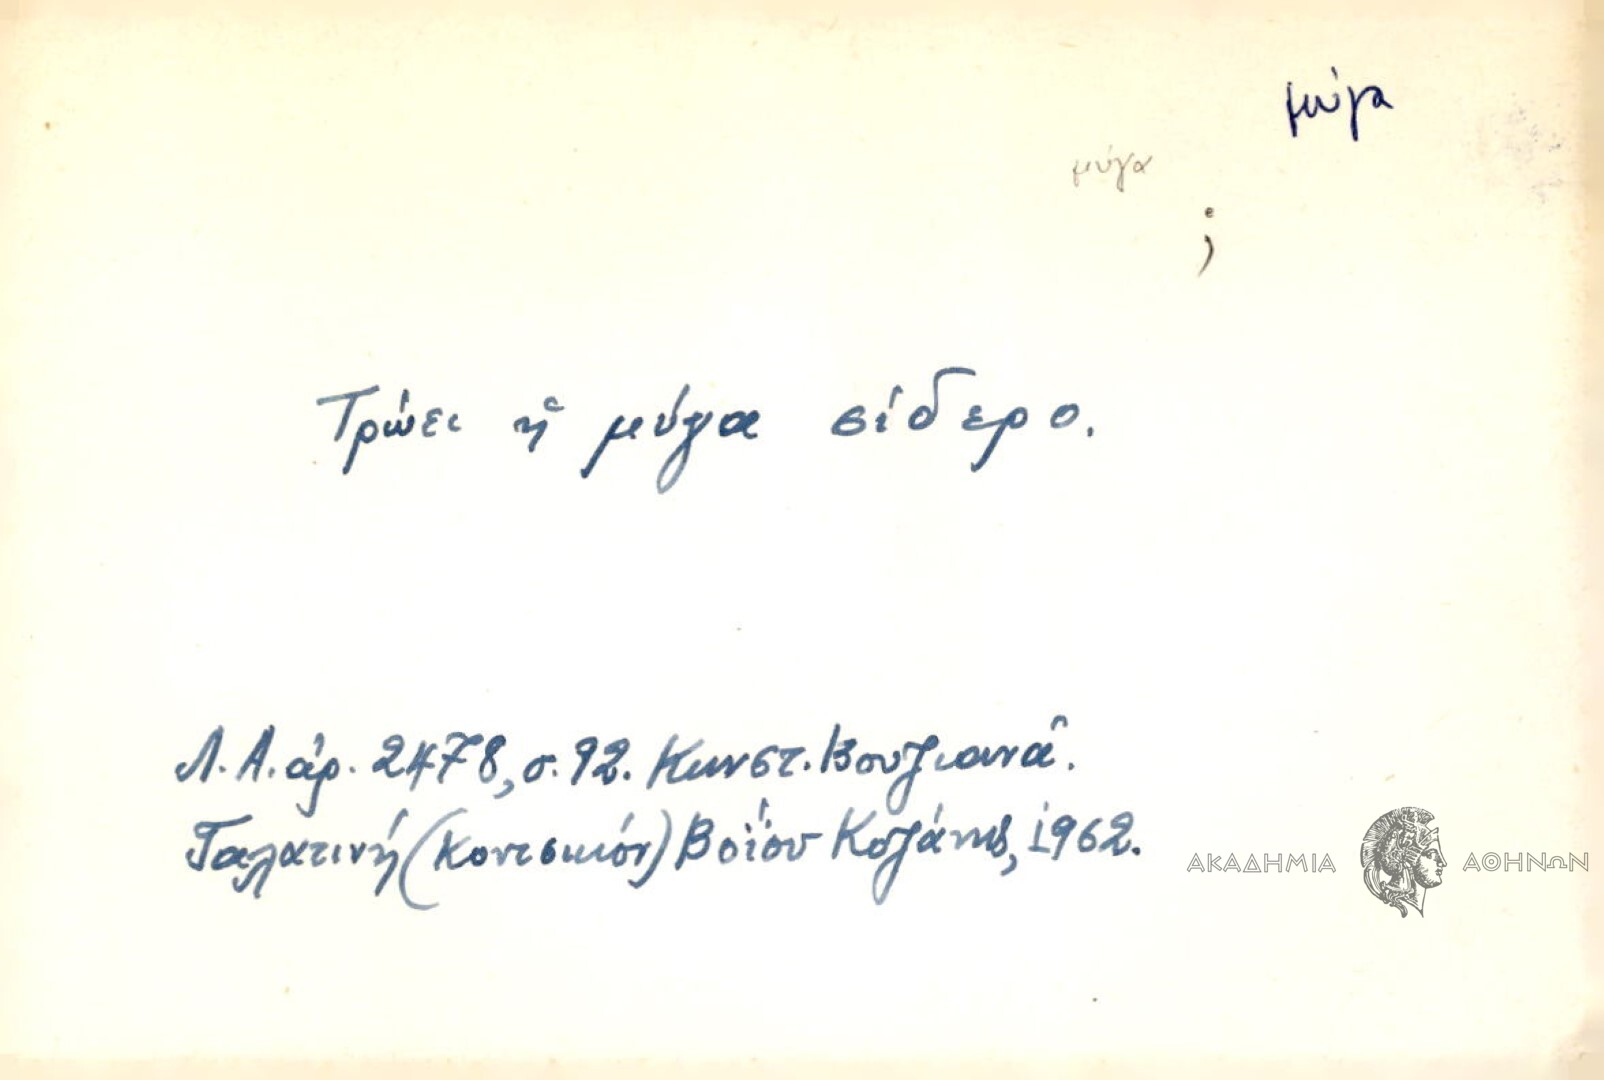 μύγα
μύγα
;
Τρώει ἡ μύγα σίδερο.
Λ.Α. ἀρ. 2478, σ. 92. Κωνστ. Βουζιανᾶ.
Γαλατινή (Κοντσικιόν) Βοΐου Κοζάνης, 1962.
ΑΚΑΔΗΜΙΑ ΑΘΗΝΩΝ